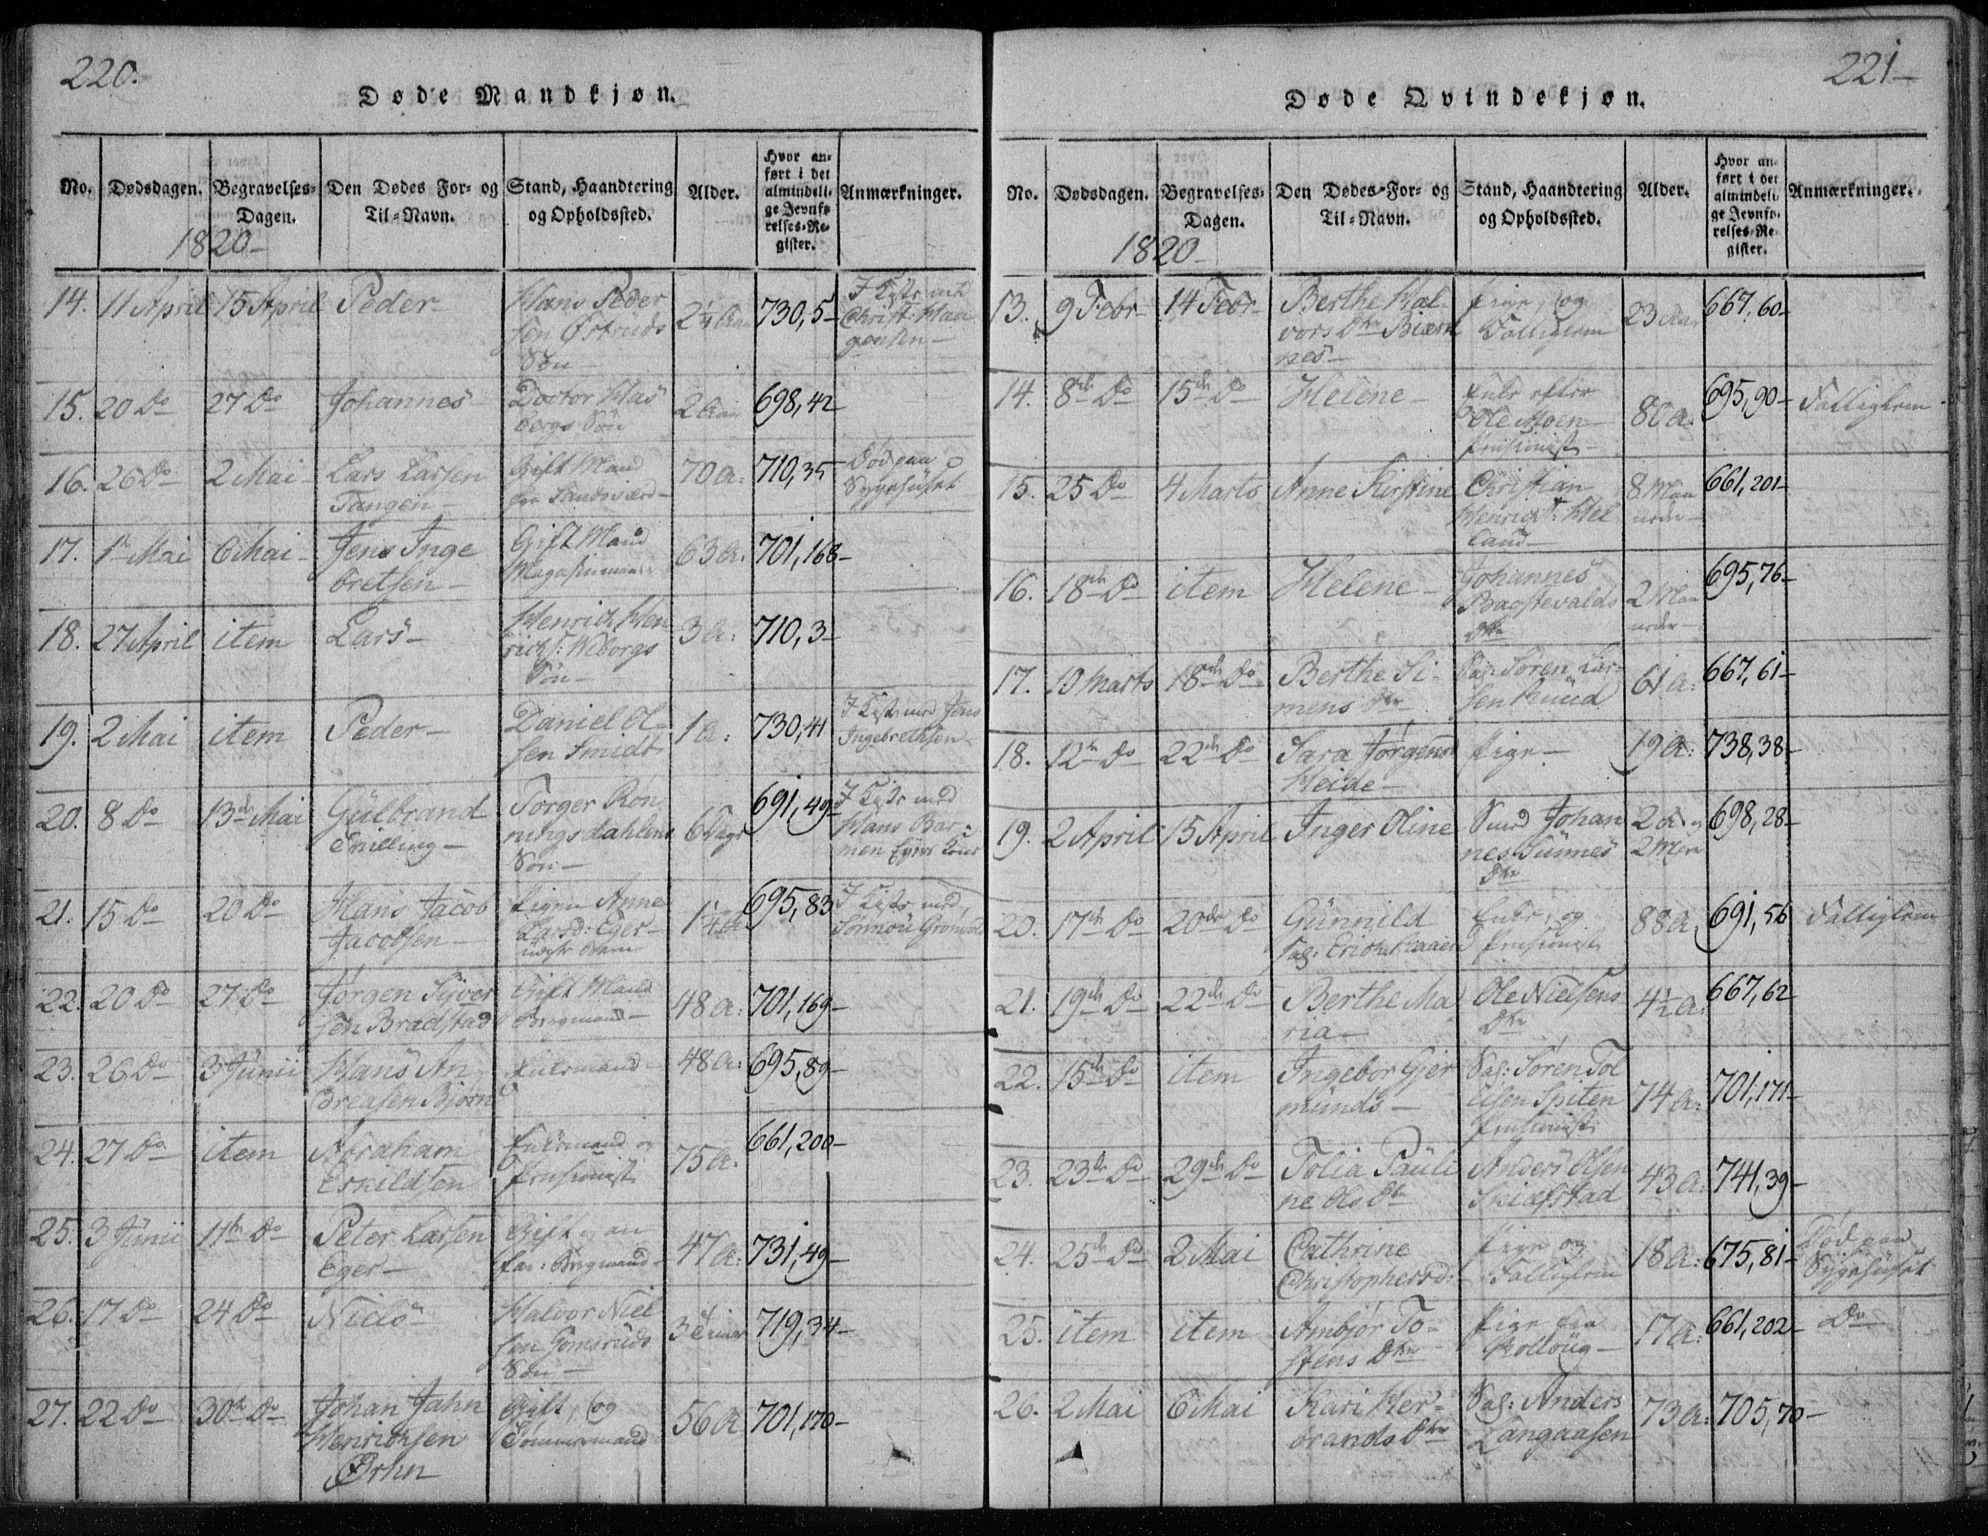 220.
Døde Mandkjøn.
No. Dødsdagen. Begravelses-Dagen. Den Dødes For- og Til-Navn. Stand, Haandtering og Opholdssted. Alder. Hvor anført i det almindelige Jevnførelses-Register. Anmærkninger.
1820
14. 11 April 15 April Peder Hans Pedersen Østruds Søn 2 1/4 730,5 I Kiste med Christ.
15. 20 Do 27 Do Johannes Doctor Søn 2 698,42
16. 26 Do 2 Mai Lars Larsen Tangen Gift Mand fra Sandsværd 70 a: 710,35 Død paa Sygehuset
17. 1 Mai 6 Mai Jens Ingebretsen Gift Mand 63 a: 701,168
18. 27 April item Lars Henrich Henrichs: Wiborgs Søn 3 a: 710,3
19. 2 Mai item Peder Daniel Olsen Smidt 1 a: 730,41 I Kiste med Jens Ingebrethsen
20. 8 Do 13de Mai Gulbrand Torger Ronningsdahlens Søn 6 Dage 691,49 I Kiste med Hans
21. 15 Do 20 Do Hans Jacob Jacobsen Pigen Anne Larsd: Eger 695,83 I Kiste med
22. 20 Do 27 Do Jørgen Syversen Bradstad Gift Mand Bergmand 48 a: 701,169
23. 26 Do 3 Junii Hans Andreasen Bjørn Enkemand 48 a: 695,89
24. 27 Do item Abraham Eskildsen Enkemand og Pensionist 75 a: 661,200
25. 3 Junii 11te Do Peter Larsen Eger Gift, Bergmand 47 a: 731,49
26. 17 Do 24 Do Niels Halvor Nielsen Gomsruds Søn 3 Timer 719,34
27. 22 Do 30te Do Johan Jahn Henrichsen Ørhn Gift, og Tømmermand 56 a 701,170
221
Døde Qvindekjøn.
No. Dødsdagen. Begravelses-Dagen. Den Dødes-For- og Til-Navn. Stand, Haandtering og Opholdssted. Alder. Hvor anført i det almindelige Jevnførelses-Register. Anmærkninger.
1820
13. 9 Febr 14 Febr Berthe Halvors Dtr Biørnnes Pige, og Fattiglem 23 667,60
14. 8de Do 15de Do Helene Enke efter Ole Moen Pensionist 80 a. 695,90 Fattiglem
15. 25 Do 4 Marts Anne Kirstine Christian Henrichs: Helland 8 Maaneder 661,201
16. 18de Do item Helene Johannes Dtr 2 Maaneder 695,76
17. 10 Marts 18de Do Berthe Simens Dtr Sal: Søren Larsen Ruud 61 a: 667,61
18. 12te Do 22de Do Sara Jørgens Heide Pige 19 a: 738,38
19. 2 April 15 April Inger Oline Smed Johannes Dtr 2 a og 698,28
20. 17de Do 20de Do Gunnild Enke, og Pensionist 88 a. 691,56 Fattiglem
21. 19de Do 22de Do Berthe Maria Ole Nielsens Dtr 4 1/2 a: 667,62
22. 15de Do item Ingebor Gjermunds Sal: Søren Tollefsen Spiten Pensionist 74 a: 701,171
23. 23de Do 29de Do Tolia Pauline Ols Dtr Anders Olsen 43 a: 741,39
24. 25de Do 2 Mai Cathrine Christophersd: Pige og Fattiglem 18 a: 675,81 Død paa Sygehuset
25. item item Ambjør Tostens Dtr Pige fra Rolloug 17 a: 661,202 Do
26. 2 Mai 6 Mai Kari Herbrands Dtr Sal: Anders Langaasen 73 a: 705,70